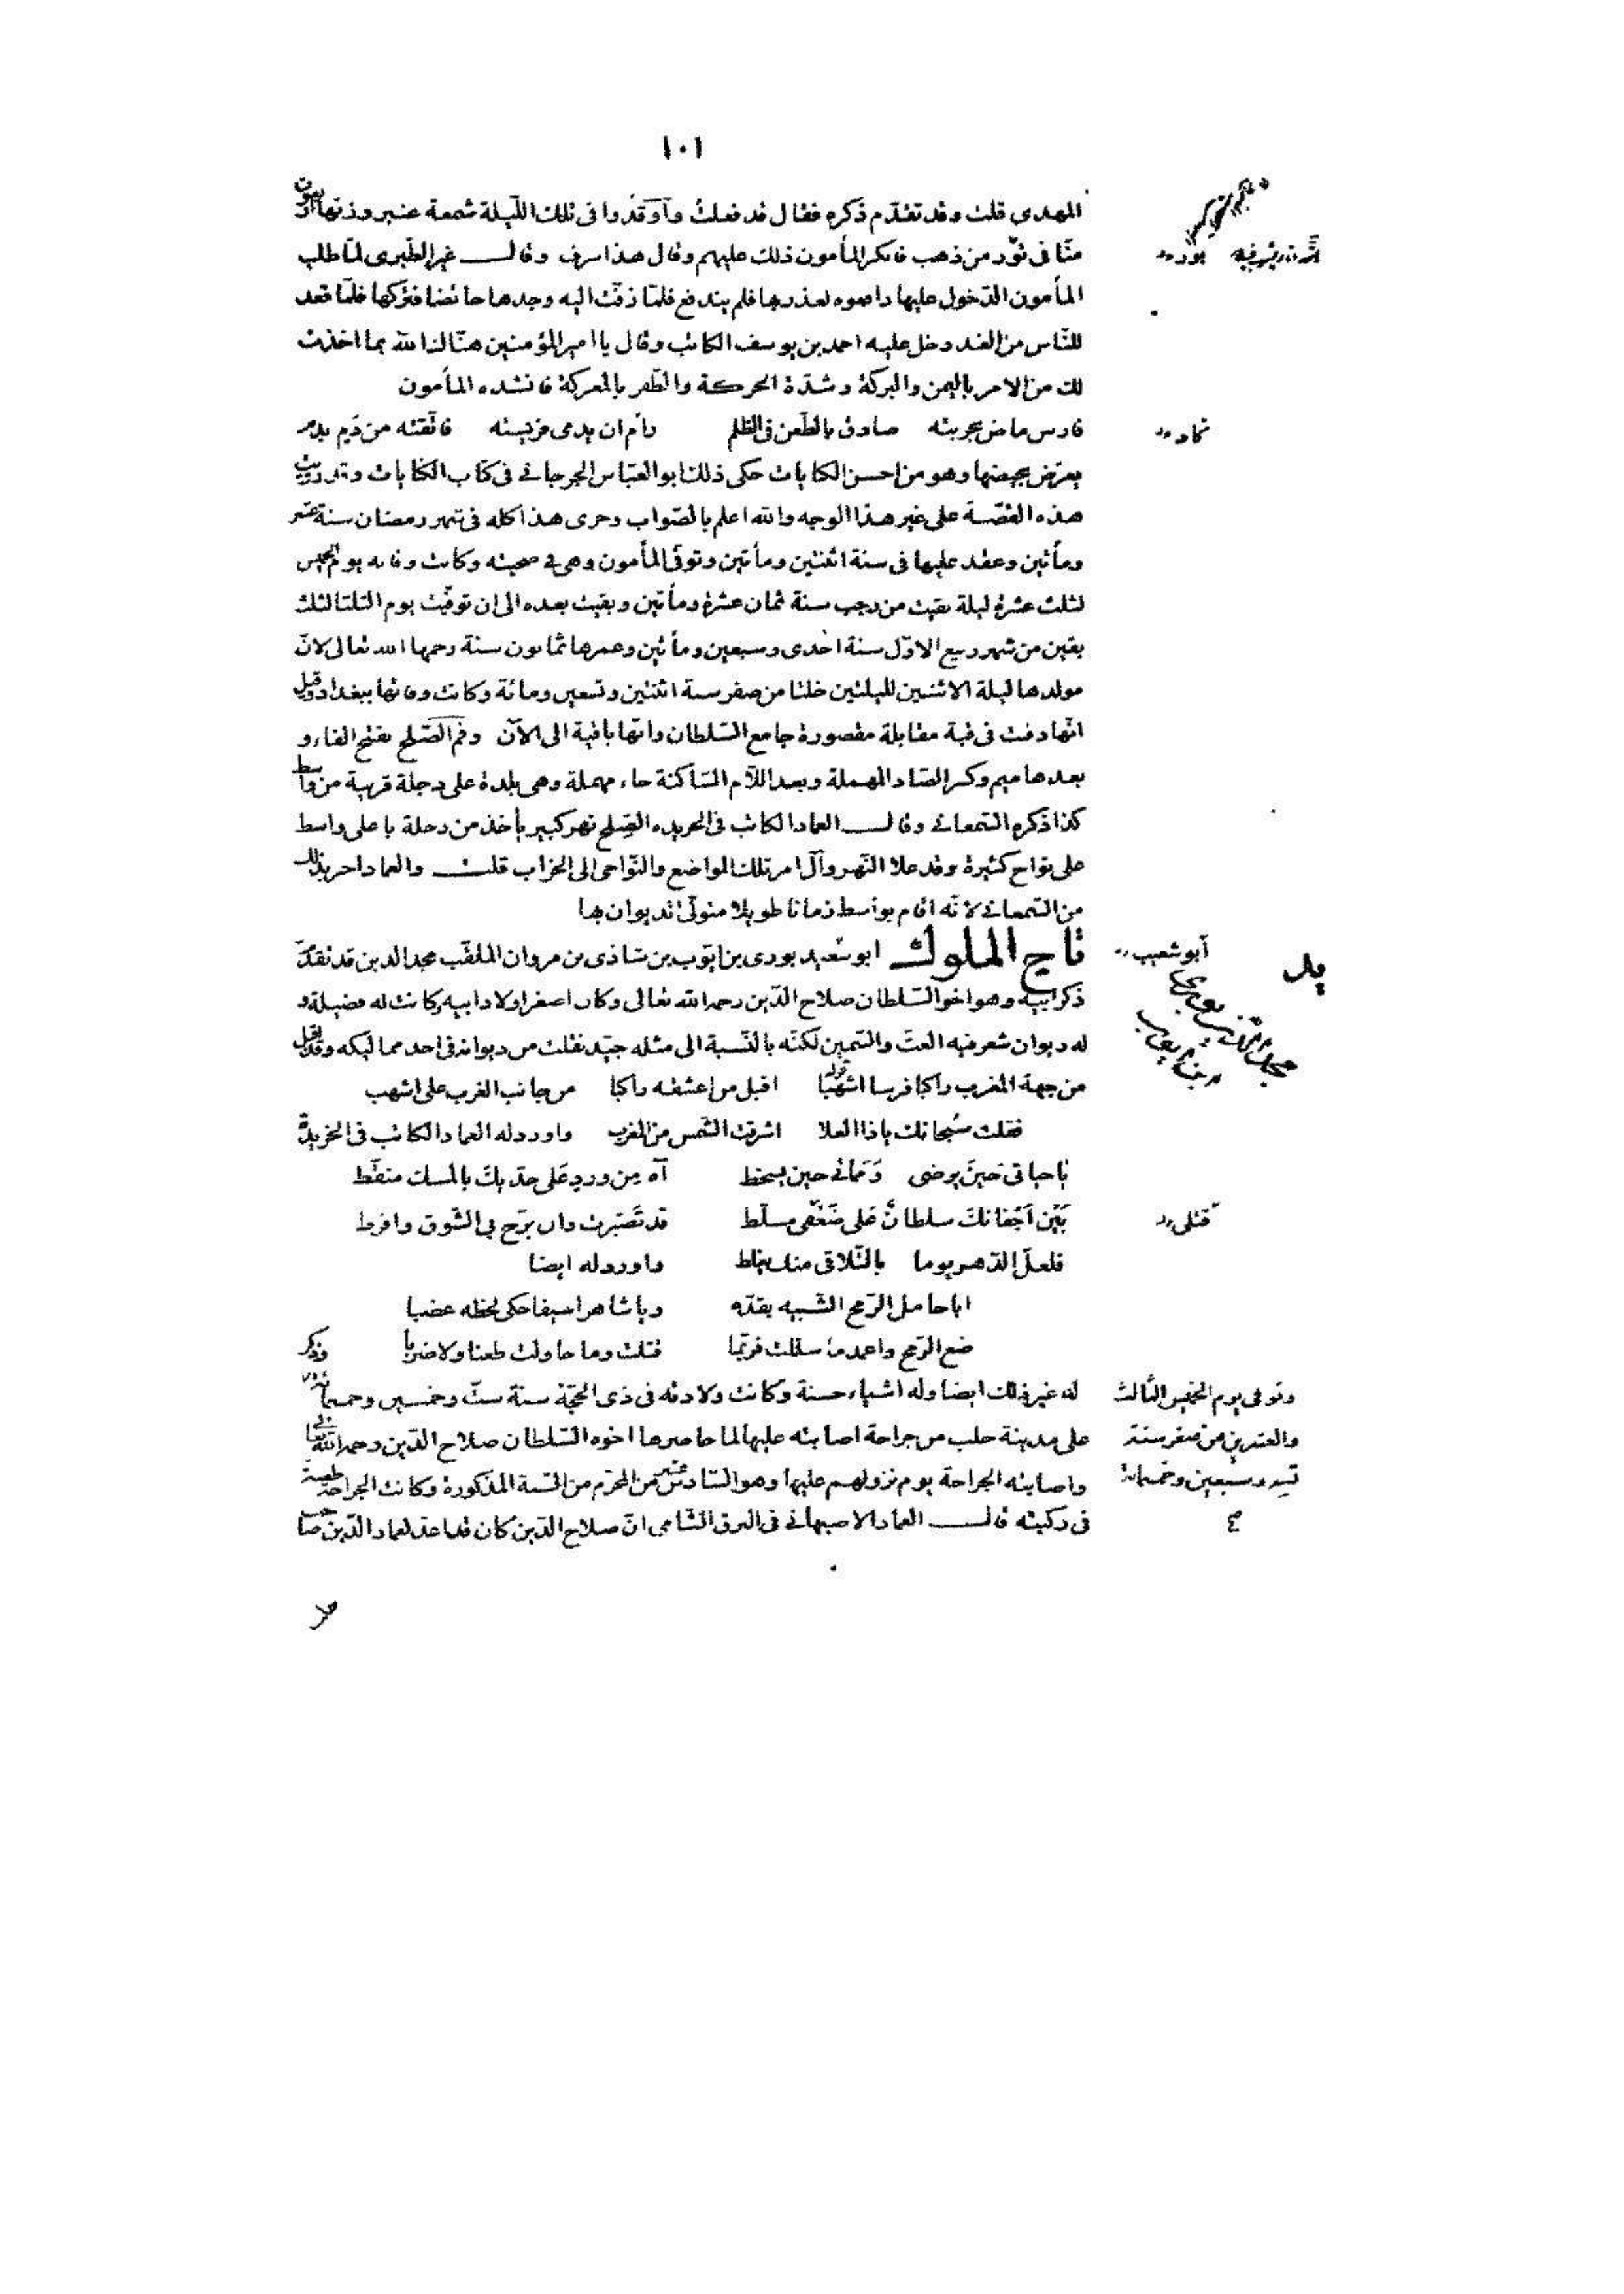 ١٠١
المهدى قلت وقد تقدّم ذكره فقال قد فعلت وأوقدوا فى تلك الليلة شمعة عنبر وزنها اربعون
منّا فى تور من ذهب فانكر المأمون ذلك عليهم وقال هذا سرف وقال غير الطبرى لمّا طلب
المأمون الدّخول عليها دافعوه لعذر بها فلم يندفع فلمّا زفّت اليه وجدها حائضا فتركها فلمّا قعد
للنّاس من الغد دخل عليه احمد بن يوسف الكاتب وقال يا امير المؤمنين هنّاك الله بما اخذت
لك من الامر باليمن والبركة وشدّة الحركة والظّفر بالمعركة فانشده المأمون
فارس ماض بحربته صادق بالطّعن فى الظلم
رام ان يدمى فريسته فاتّقته من دم بدم
يعرّض بحيضها وهو من احسن الكنايات حكى ذلك ابو العبّاس الجرجانى فى كتاب الكنايات وقد رويت
هذه القصّة على غير هذا الوجه والله اعلم بالصّواب وجرى هذا كله فى شهر رمضان سنة عشر
ومأتين وعقد عليها فى سنة اثنتين ومأتين وتوفّى المأمون وهى فى صحبته وكانت وفاته يوم الخميس
لثلث عشرة ليلة بقيت من رجب سنة ثمان عشرة ومأتين وبقيت بعده الى ان توفّيت يوم الثلثا لثلث
بقين من شهر ربيع الاوّل سنة احدى وسبعين ومأتين وعمرها ثمانون سنة رحمها الله تعالى لانّ
مولدها ليلة الاثنين لليلتين خلتا من صفر سنة اثنتين وتسعين ومائة وكانت وفاتها ببغداد وقيل
انّها دفنت فى قبة مقابلة مقصورة جامع السّلطان وانّها باقية الى الآن وفم الصّلح بفتح الفاء و
بعدها ميم وكسر الصّاد المهملة وبعد اللّام السّاكنة حاء مهملة وهى بلدة على دجلة قريبة من واسط
كذا ذكره السّمعانى وقال العماد الكاتب فى الخريده الصّلح نهر كبير يأخذ من دجلة باعلى واسط
على نواح كثيرة وقد علا النّهر وآل امر تلك المواضع والنّواحى الى الخراب قلت والعماد اخبر بذلك
من السّمعانى لانّه اقام بواسط زمانا طويلا متولّى الديوان بها
تاج الملوك ابو سعيد بورى بن ايّوب بن شاذى بن مروان الملقّب مجد الدين قد تقدّم
ذكر ابيه وهو اخو السّلطان صلاح الدّين رحمه الله تعالى وكان اصغر اولاد ابيه وكانت له فضيلة و
له ديوان شعر فيه الغث والسّمين لكنّه بالنّسبة الى مثله جيّد نقلت من ديوانه فى احد مماليكه وقد اقبل
من جهة المغرب راكبا فرسا اشهبا قوله اقبل من اعشقه راكبا من جانب الغرب على اشهب
فقلت سُبحانك ياذا العلا اشرقت الشّمس من المغرب واورد له العماد الكاتب فى الخريدة
يا حياتى حين يرضى وَمماتى حين يسخط
آه مِن وردٍ عَلى خدّيكَ بالمسك منقّط
بَيْن اَجْفانك سلطانٌ عَلى ضَعْفى مسلّط
قد تَصَبّرت وان برّح بى الشّوق وافرط
فلعلّ الدّهر يوما بالتّلاقى منك يغلط
واورد له ايضا
ايا حامل الرّمح الشّبيه بقدّه
ويا شاهرا سيفا حكى لحظه عضبا
ضع الرّمح واغمد ما سللت فربّما
قتلت وما حاولت طعنا ولا ضربا
وذكر
له غير ذلك ايضا وله اشياء حسنة وكانت ولادته فى ذى الحجّة سنة ستّ وخمسين وخمسمائة
على مدينة حلب من جراحة اصابته عليها لما حاصرها اخوه السّلطان صلاح الدّين رحمه الله تعالى
واصابته الجراحة يوم نزولهم عليها وهو السّادس عشر من المحرّم من السّنة المذكورة وكانت الجراحة طعنة
فى ركبته قال العماد الاصبهانى فى البرق الشّامى انّ صلاح الدّين كان قد اعدّ لعماد الدّين صاحب
ابو شعيب
يد
قتلى
وتوفى يوم الخميس الثّالث
والعشرين من صفر سنة
تسع وسبعين وخمسمائة